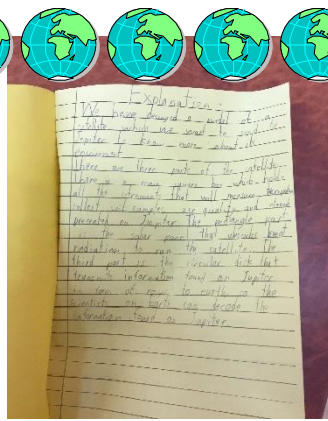 Explanation:
We have designed a model of a
satellite which we want to send to
Jupiter to know more about its
environment
There are three parts of the satellite
There is a main square part which holds
all the instruments that will measure
collect soil samples, air quality and
presented on Jupiter The rectangle part
is the solar panel that absorbs
radiation to run the satellite. The
third part is the circular disk that
transmits information found on Jupiter
in form of rays to earth so the
scientists on earth can decode the
information found on Jupiter